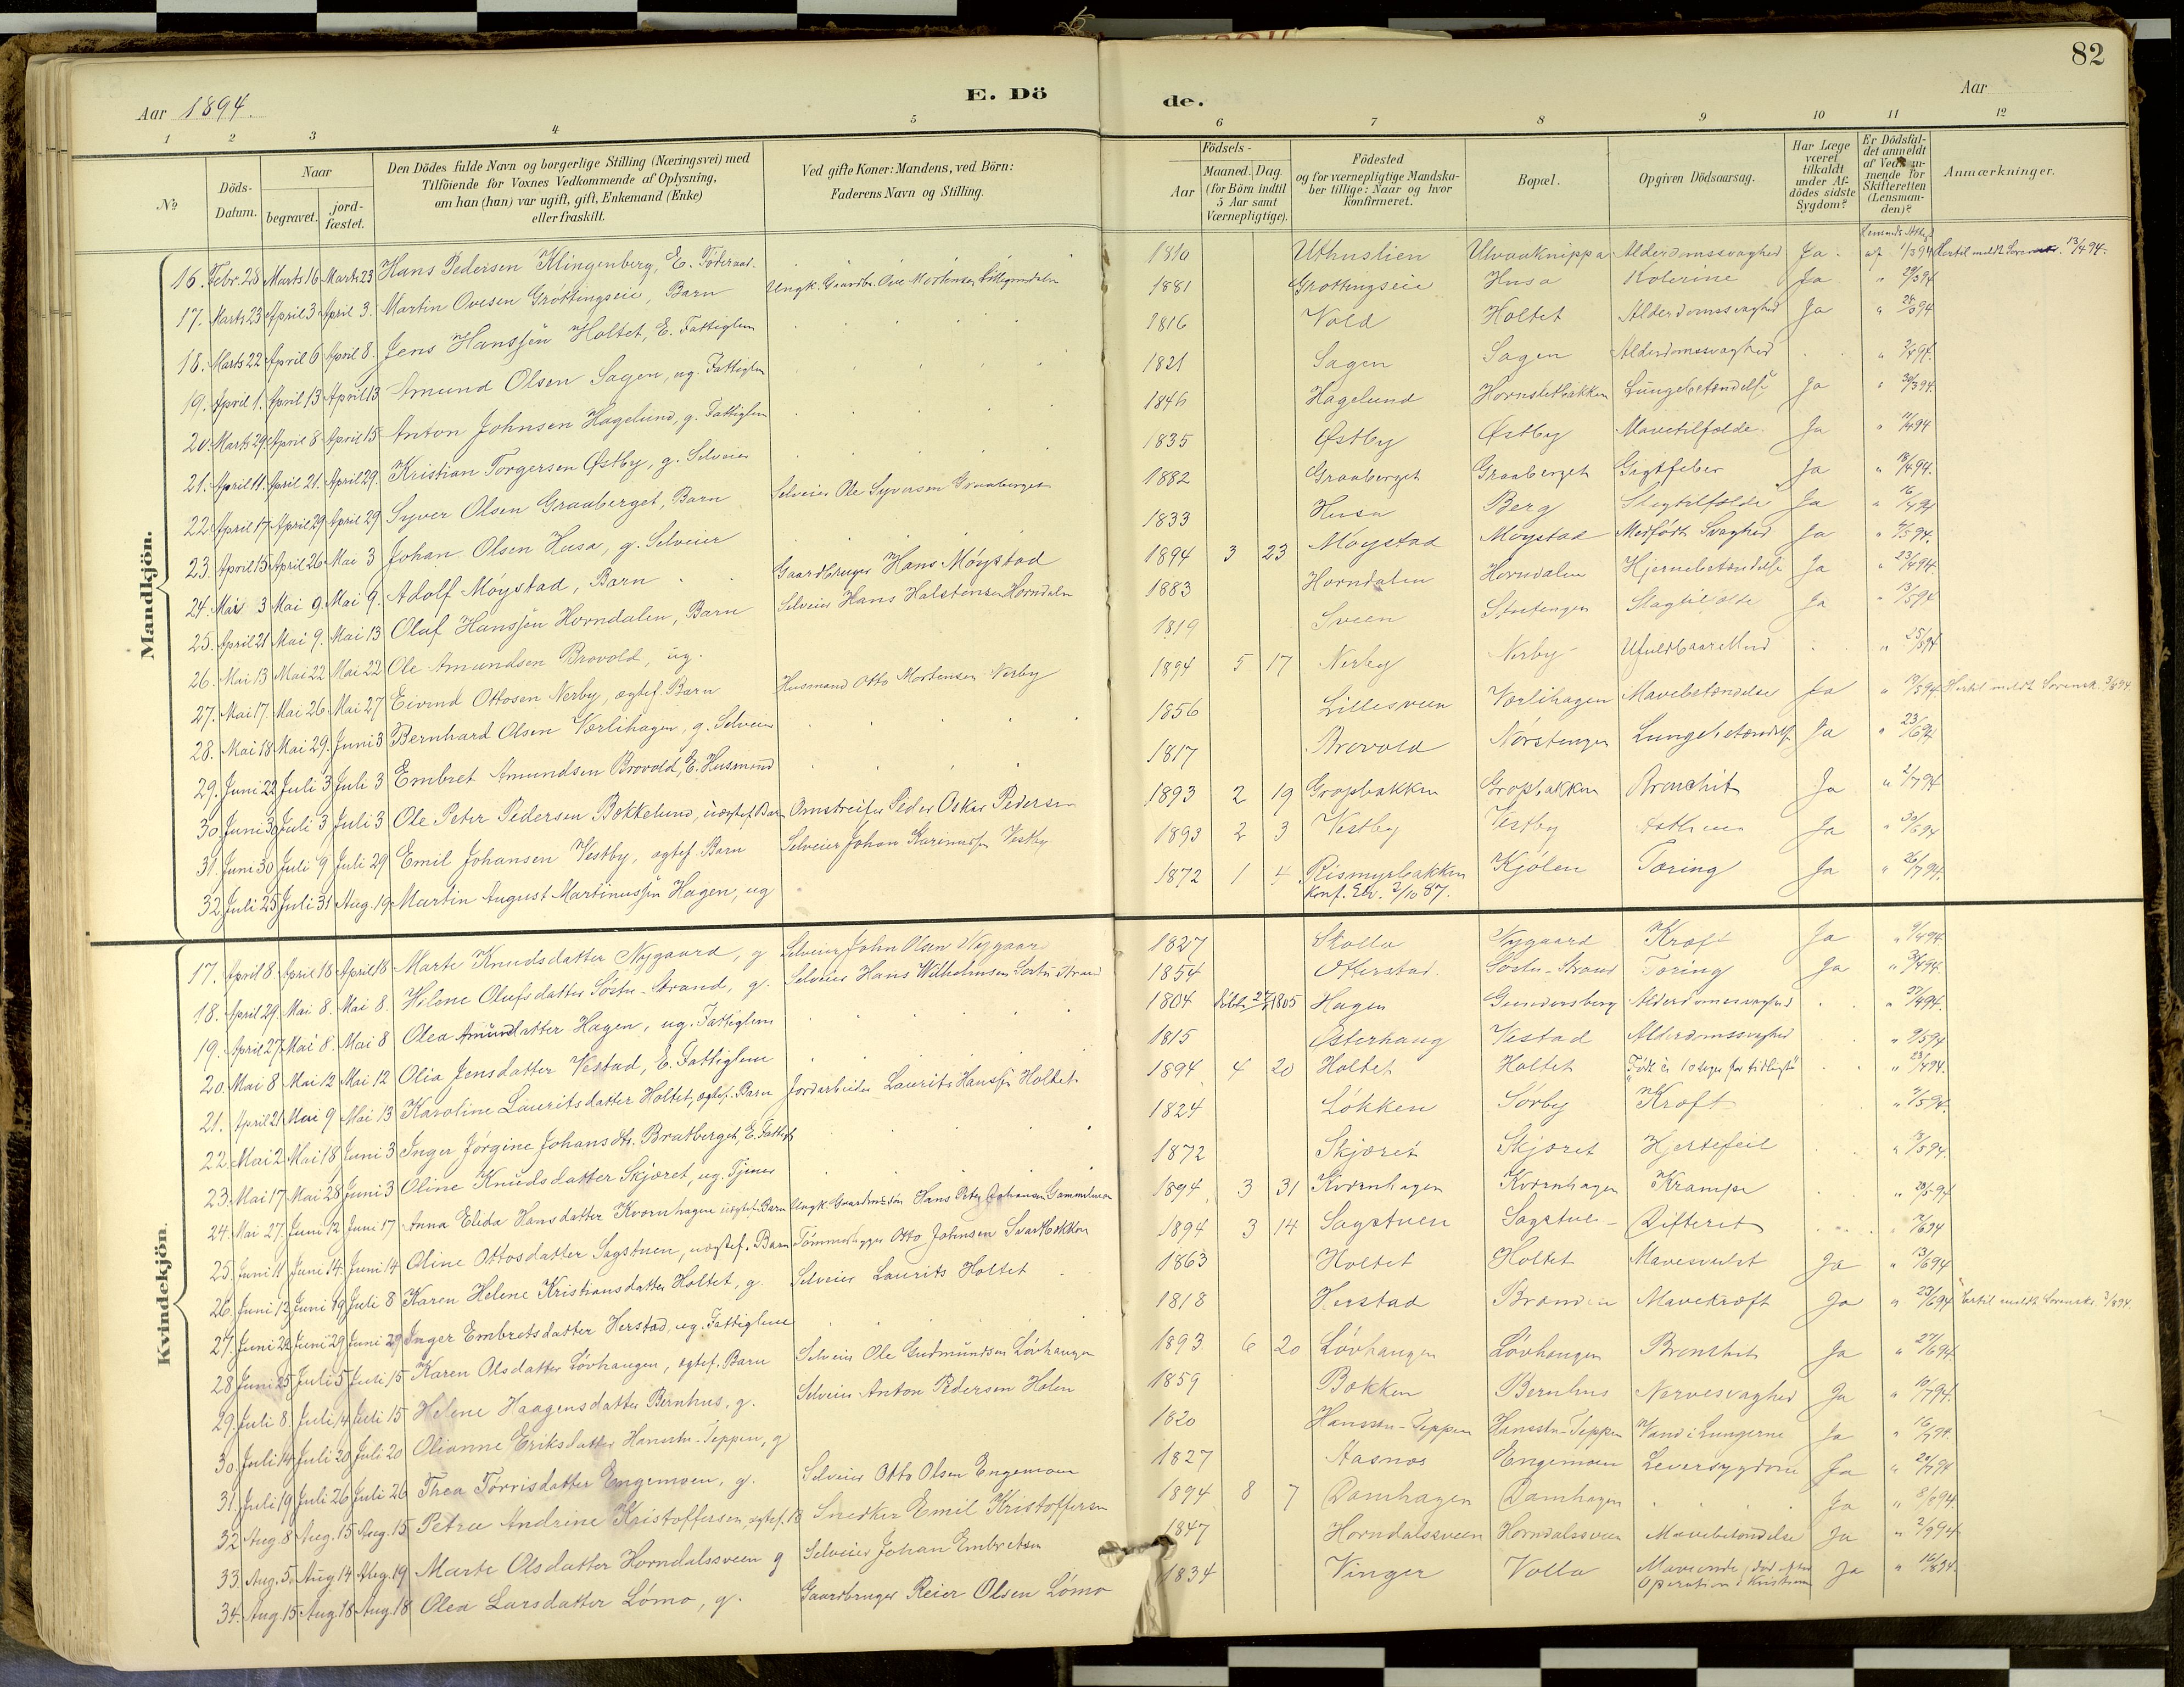 82
Aar 1894.
E. Dö
de.
Aar
1 2 3 4 5 6 7 8 9 10 11 12
No
Döds-Datum.
Naar
begravet.
jord-fæstet.
Den Dödes fulde Navn og borgerlige Stilling (Næringsvei) med
Tilföiende for Voxnes Vedkommende af Oplysning,
om han (hun) var ugift, gift, Enkemand (Enke)
eller fraskilt.
Ved gifte Koner: Mandens, ved Börn:
Faderens Navn og Stilling.
Födsels-
Aar
Maaned. Dag.
(for Börn indtil
5 Aar samt
Værnepligtige).
Födested
og for værnepligtige Mandska-
ber tillige: Naar og hvor
konfirmeret.
Bopæl.
Opgiven Dödsaarsag.
Har Læge
været
tilkaldt
under Af-
dödes sidste
Sygdom?
Er Dödsfal-
det anmeldt
af Vedkom-
mende for
Skifteretten
(Lensman-
den)?
Anmærkninger.
Mandkjön.
16. Febr. 28 Marts 16 Marts 23 Hans Pedersen Klingenberg, E. Föderaad. 1810 Uthuslien Ulvaaknippa Alderdomssvaghed Ja 1/3 94 13/4 94.
17. Marts 23 April 3 April 3. Martin Ovesen Grøttingseie, Barn Ungk. Gaardbr. Ove Mortensen 1881 Grøttingseie Husa Kolerine Ja " 29/3 94
18. Marts 22 April 6 April 8. Jens Hanssen Holtet, E. Fattiglem 1816 Vold Holtet Alderdomssvaghed Ja " 94
19. April 1. April 13 April 13 Amund Olsen Sagen, ug. Fattiglem 1821 Sagen Sagen Alderdomssvaghed " 2/4 94.
20. Marts 29. April 8 April 15 Anton Johnsen Hagelund, g. Fattiglem 1846 Hagelund Hornsletbakken Lungebetændelse Ja " 30/3 94.
21. April 11. April 21. April 29. Kristian Torgersen Østby, g. Selveier 1835 Østby Østby Mavetilfælde Ja " 11/4 94
22. April 17 April 29 April 29 Syver Olsen Graaberget, Barn Selveier Ole Syversen Graaberget 1882 Graaberget Graaberget Gigtfeber Ja " 18/4 94.
23. April 15 April 26 Mai 3 Johan Olsen Husa, g. Selveier 1833 Husa Berg Slagtilfælde Ja " 16/4 94
24. Mai 3 Mai 9. Mai 9. Adolf Möystad, Barn Gaardbruger Hans Möystad 1894 3 23 Möystad Möystad Medfödt Svaghed Ja " 4/5 94.
25. April 21 Mai 9. Mai 13 Olaf Hanssen Horndalen, Barn Selveier Hans Halstensen Horndalen 1883 Horndalen Horndalen Hjernebetændelse Ja " 23/4 94.
26. Mai 13 Mai 22 Mai 22 Ole Amundsen Brovold, ug. 1819 Sveen Slagtilfælde Ja " 13/5 94
27. Mai 17. Mai 26. Mai 27 Eivind Ottosen Nerby, ægtef. Barn Husmand Otto Mortensen Nerby 1894 5 17 Nerby Nerby Ufuldbaaret " 25/5 94
28. Mai 18 Mai 29. Juni 3 Bernhard Olsen Værlihagen, g. Selveier 1856 Lillesveen Værlihagen Mavebetændelse Ja " 19/5 94
29. Juni 22 Juli 3 Juli 3 Embret Amundsen Brovold, E. Husmand 1817 Brovold Lungebetændelse Ja " 23/6 94
30. Juni 30 Juli 3 Juli 3 Ole Peter Pedersen Bækkelund, uægtef. Barn Omstreifer Peder Oskar Pedersen 1893 2 19 Gropbakken Gropbakken Bronchit Ja " 2/7 94
31. Juni 30 Juli 9 Juli 29 Emil Johansen Vestby, ægtef. Barn Selveier Johan Karinussen Vestby 1893 2 3 Vestby Vestby Asthma Ja " 30/6 94
32. Juli 25 Juli 31 Aug. 19 Martin August Martinussen Hagen, ug 1872 1 4 Rismyrbakken Kjölen Tæring Ja " 26/7 94.
konf. Elv. 2/10 87.
Kvindekjön.
17. April 8 April 18 April 18 Marte Knudsdatter Nygaard, g Selveier John Olsen Nygaard 1827 Skolla Nygaard Kræft Ja " 9/4 94
18. April 29. Mai 8. Mai 8. Helene Olufsdatter Söstu-Strand, g. Selveier Hans Wilhelmsen Söstu Strand 1854 Otterstad Söstu-Strand Tæring Ja " 94.
19. April 27 Mai 8. Mai 8 Olea Hagen, ug. Fattiglem 1804 1805 Hagen Gundersberg Alderdomssvaghed " 94.
20. Mai 8 Mai 12 Mai 12 Olia Jensdatter Vestad, E. Fattiglem 1815 Østerhaug Vestad Alderdomssvaghed " 9/5 94
21. April 21 Mai 9 Mai 13 Karoline Lauritsdatter Holtet, ægtef. Barn Jordarbeider Laurits Hanssen Holtet 1894 4 20 Holtet Holtet Födt 10 dage for tidligt " 23/4 94.
22. Mai 2 Mai 18 Juni 3 Inger Jörgine Johansdtr. Bratberget, E. Fattigl. 1824 Lökken Sörby Kræft " 94.
23. Mai 17 Mai 28 Juni 3 Oline Knudsdatter Skjæret, ug. Tjener 1872 Skjæret Skjæret Hjertefeil " 94.
24. Mai 27. Juni 12 Juni 17 Anna Elida Hansdatter Kværnhagen uægtef. Barn Ungk. Hans Peter Johansen 1894 3 31 Kværnhagen Kværnhagen Krampe " 94
25. Juni 11 Juni 14. Juni 14 Oline Ottosdatter Sagstuen, uægtef. Barn Tömmerhugger Otto Johnsen 1894 3 14 Sagstuen Sagstue- Difterit 94
26. Juni 12 Juni 19 Juli 8 Karen Helene Kristiansdatter Holtet, g. Selveier Laurits Holtet 1863 Holtet Holtet Mavesvulst Ja " 13/6 94
27. Juni 22 Juni 29 Juni 29 Inger Embretsdatter Herstad, ug. Fattiglem 1818 Herstad Mavekræft Ja " 23/6 94
28. Juni 25 Juli 5 Juli 15 Karen Olsdatter Lövhaugen, ægtef. Barn Selveier Ole Gudmundsen Lövhaugen 1893. 6 20 Lövhaugen Lövhaugen Bronchit Ja " 27/6 94
29. Juli 8. Juli 14 Juli 15 Helene Haagensdatter Bernhus, g. Selveier Anton Pedersen Holen 1859 Bækken Bernhus Nervesvaghed Ja " 10/7 94.
30. Juli 14 Juli 20 Juli 20 Olianne Eriksdatter Hansstu-Teppen, g 1820 Hansstu-Teppen Hansstu-Teppen Vand i Lungerne Ja " 16/7 94.
31. Juli 19 Juli 26 Juli 26 Thea Torrisdatter Engemoen, g. Selveier Otto Olsen Engemoen 1827 Aasnæs Engemoen Leversygdom Ja " 20/7 94
32. Aug. 8 Aug. 15 Aug. 15 Petra Andrine Kristoffersen, ægtef. B Snedker Emil Kristoffersen 1894 8 7 Damhagen Damhagen Ja " 8/8 94
33. Aug. 5. Aug 14 Aug. 19 Marte Olsdatter Horndalssveen g Selveier Johan Embretsen 1847 Horndalssveen Horndalssveen Mavebetændelse Ja " 2/9 94
34. Aug. 15 Aug. 18 Aug. 18 Olea Larsdatter Lömo, g. Gaardbruger Reier Olsen Lömo 1834 Vinger Volla Maveonde (död efter Operation i Ja " 16/8 94.